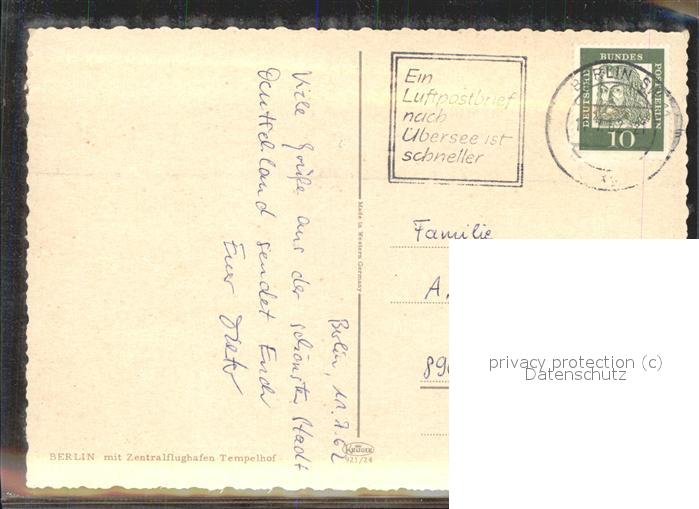 Berlin, 11.7.62
Viele Grüße aus der schönsten Stadt
Deutschland sendet Euch
Euer Dieter
BERLIN mit Zentralflughafen Tempelhof
Made in Western Germany
KRÜGER
921/24
Ein
Luftpostbrief
nach
Übersee ist
schneller
BERLIN
DEUTSCHE BUNDESPOST BERLIN
10
Familie
A.
privacy protection (c)
Datenschutz